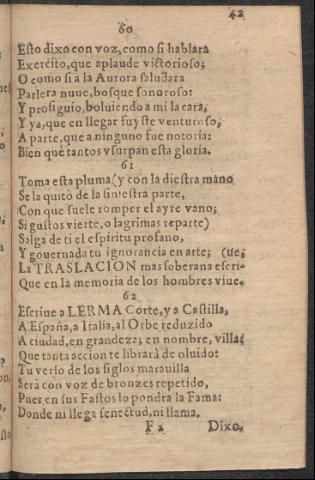 42
60
Esto dixo con voz, como si hablara
Exercito, que aplaude victorioso;
O como si a la Aurora saludara
Parlera nuue, bosque sonoroso:
Y prosiguio, boluiendo a mi la cara,
Y ya, que en llegar fuyste venturoso,
A parte, que a ninguno fue notoria:
Bien què tantos vsurpan esta gloria.
61
Toma esta pluma (y con la diestra mano
Se la quitò de la siniestra parte,
Con que suele romper el ayre vano;
Si gustos vierte, o lagrimas reparte)
Salga de ti el espiritu profano,
Y gouernada tu ignorancia en arte; (ue;
La TRASLACION mas soberana escri-
Que en la memoria de los hombres viue.
62
Escriue a LERMA Corte, y a Castilla,
A España, a Italia, al Orbe reduzido
A ciudad, en grandeza; en nombre, villa;
Que tanta accion te librarà de oluido:
Tu verso de los siglos marauilla
Serà con voz de bronzes repetido,
Pues en sus Fastos lo pondra la Fama:
Donde ni llega senectud, ni llama.
F 2 Dixo.